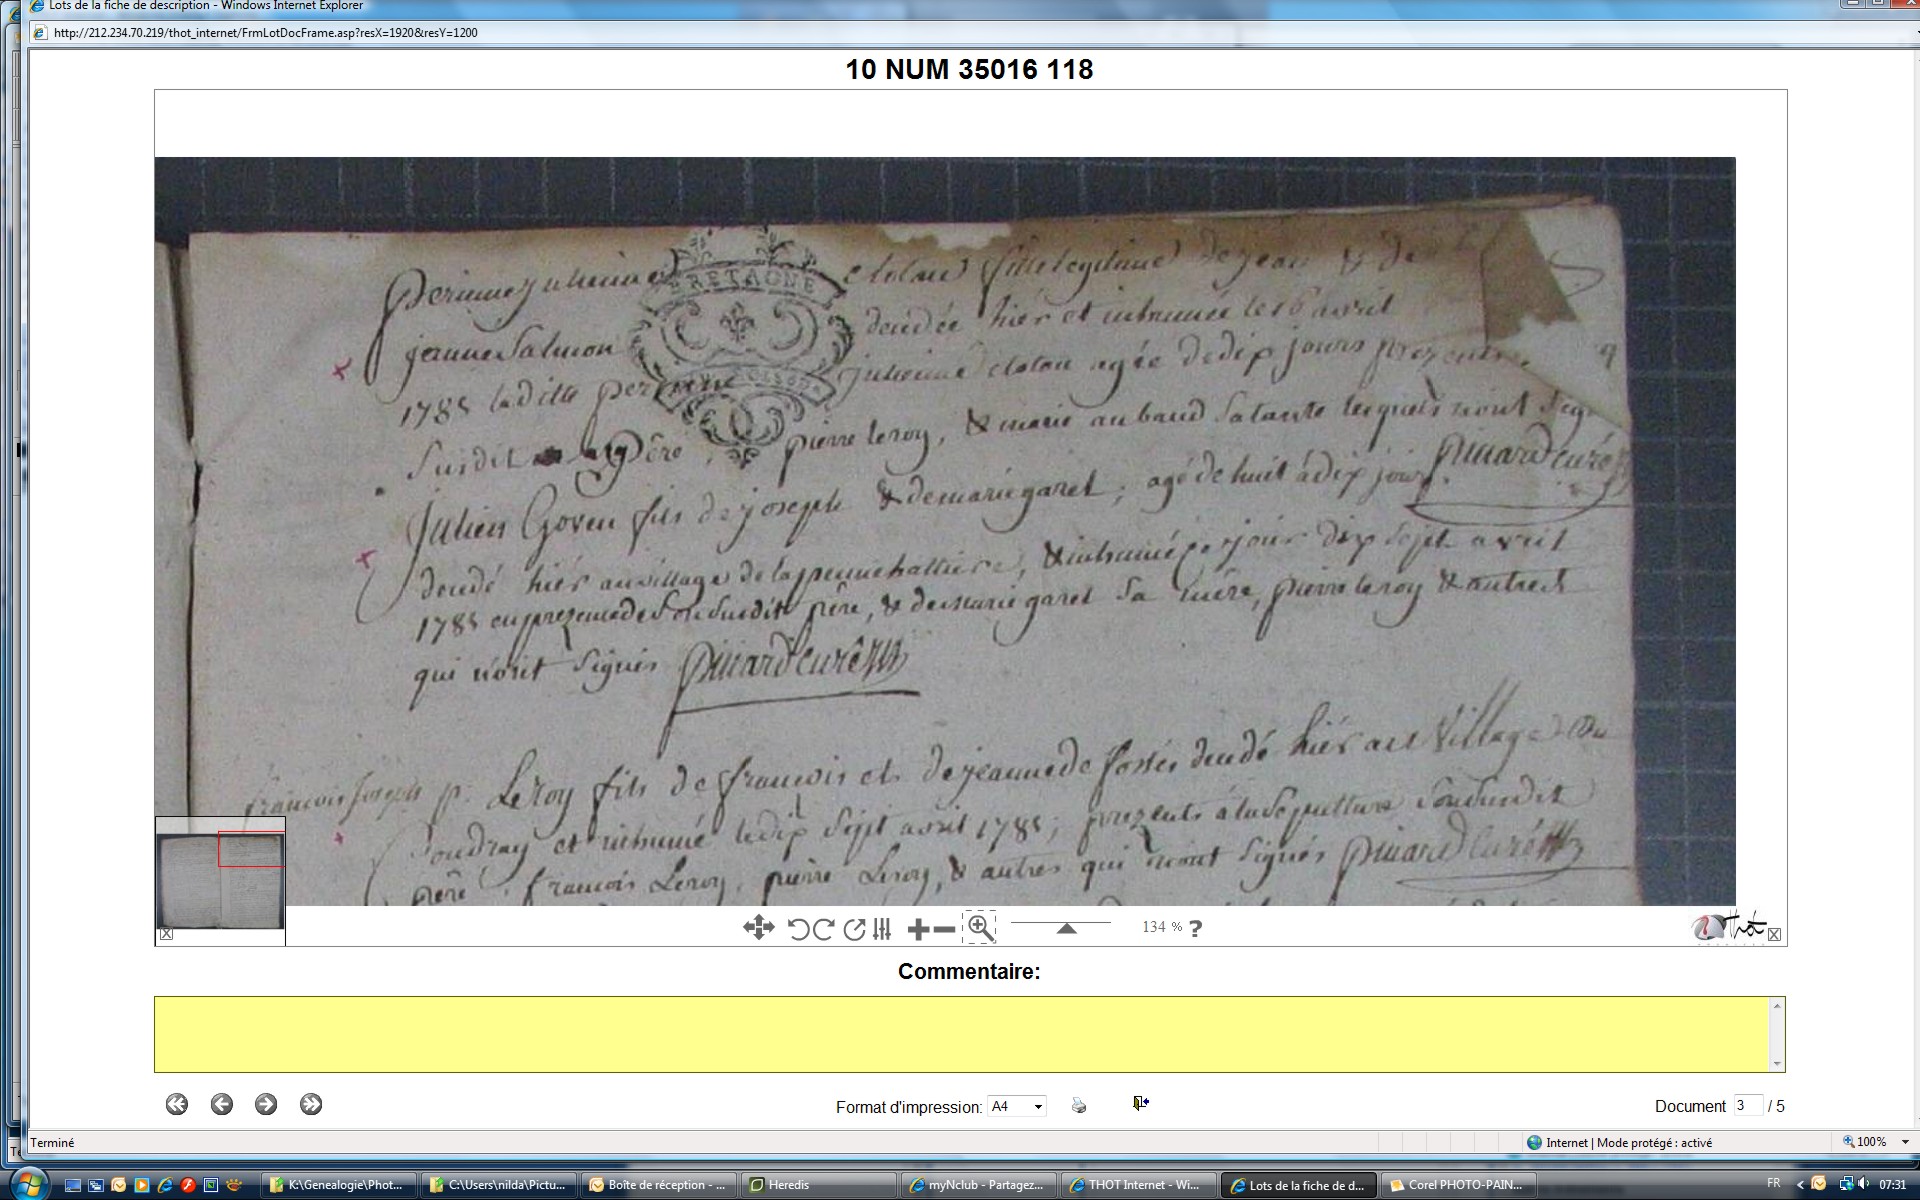 Lots de la fiche de description - Windows Internet Explorer
http://212.234.70.219/thot_internet/FrmLotDocFrame.asp?resX=1920&resY=1200
10 NUM 35016 118
BRETAGNE
perinne julienne clolau fille legitime de jean & de
jeanne Salmon decedée hiér et inhumée le 16 avril
1785 laditte perinne julienne clolau agée de dix jours prezents
Susdit père, pierre leroy, & marie aubaud sa tante lesquels n'ont sig
julien Goven fils de joseph & de marie garel, agé de huit à dix jours pinard curé
decedé hiér au village de la & inhumé ce jour dix sept avril
1785 en prezence de Son Susdit père, & de marie garel Sa mére, pierre leroy & autres
qui n'ont Signés pinard curé
francois joseph p. Leroy fils de francois et de jeanne de fostés decedé hiér au village du
Coudray et inhumé le dix Sept avril 1785; prezents à la Sepulture Son Susdit
père, francois Leroy, pierre Leroy, & autres qui n'ont Signés pinard curé
134 % ?
Thot
Commentaire:
Format d'impression: A4
Document 3 / 5
Terminé
Internet | Mode protégé : activé
100%
K:\Genealogie\Phot...
C:\Users\nilda\Pictu...
Boîte de réception - ...
Heredis
myNclub - Partagez...
THOT Internet - Wi...
Lots de la fiche de d...
Corel PHOTO-PAIN...
FR
07:31